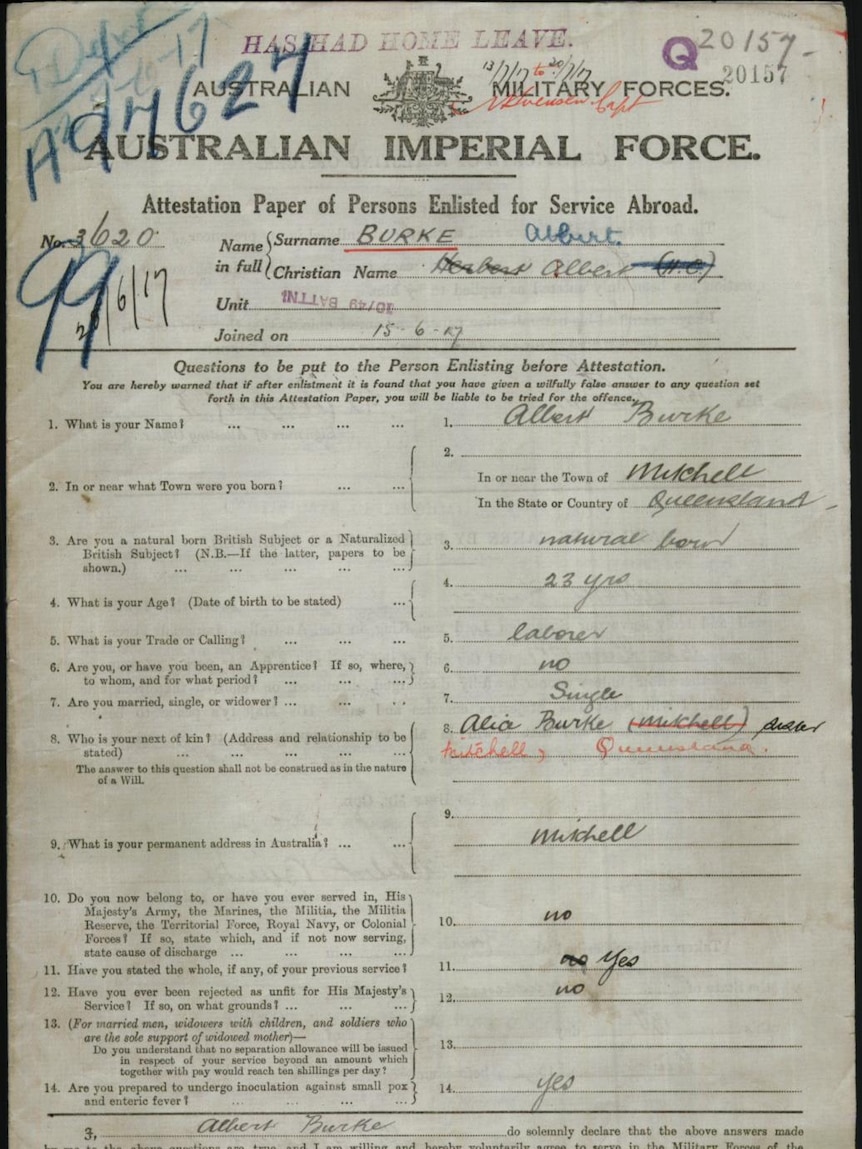 HAS HAD HOME LEAVE.
Q 20157
20157
13/7/17 to 20/7/17
AUSTRALIAN MILITARY FORCES.
Capt
A97627
AUSTRALIAN IMPERIAL FORCE.
Attestation Paper of Persons Enlisted for Service Abroad.
No. 3620
Name in full { Surname BURKE Albert.
Christian Name Herbert Albert (H.C.)
99
2/6/17
Unit 10/49 BATTN.
Joined on 15-6-17
Questions to be put to the Person Enlisting before Attestation.
You are hereby warned that if after enlistment it is found that you have given a wilfully false answer to any question set
forth in this Attestation Paper, you will be liable to be tried for the offence.
1. What is your Name? ... ... ... ... 1. Albert Burke
2. In or near what Town were you born? ... ... 2.
In or near the Town of Mitchell
In the State or Country of Queensland
3. Are you a natural born British Subject or a Naturalized
British Subject? (N.B.—If the latter, papers to be
shown.) ... ... ... ...
3. natural born
4. What is your Age? (Date of birth to be stated) ...
4. 23 yrs
5. What is your Trade or Calling? ... ... ... 5. laborer
6. Are you, or have you been, an Apprentice? If so, where,
to whom, and for what period? ... ... ...
6. no
7. Are you married, single, or widower? ... ... ... 7. Single
8. Who is your next of kin? (Address and relationship to be
stated) ... ... ... ...
The answer to this question shall not be construed as in the nature
of a Will.
8. Alia Burke (Mitchell) sister
Mitchell, Queensland.
9. What is your permanent address in Australia? ... ...
9. Mitchell
10. Do you now belong to, or have you ever served in, His
Majesty's Army, the Marines, the Militia, the Militia
Reserve, the Territorial Force, Royal Navy, or Colonial
Forces? If so, state which, and if not now serving,
state cause of discharge ... ... ... ...
10. no
11. Have you stated the whole, if any, of your previous service? 11. no Yes
12. Have you ever been rejected as unfit for His Majesty's
Service? If so, on what grounds? ... ... ...
12. no
13. (For married men, widowers with children, and soldiers who
are the sole support of widowed mother)—
Do you understand that no separation allowance will be issued
in respect of your service beyond an amount which
together with pay would reach ten shillings per day?
13.
14. Are you prepared to undergo inoculation against small pox
and enteric fever? ... ... ... ...
14. yes
I, Albert Burke do solemnly declare that the above answers made
by me to the above questions are true, and I am willing and hereby voluntarily agree to serve in the Military Forces of the